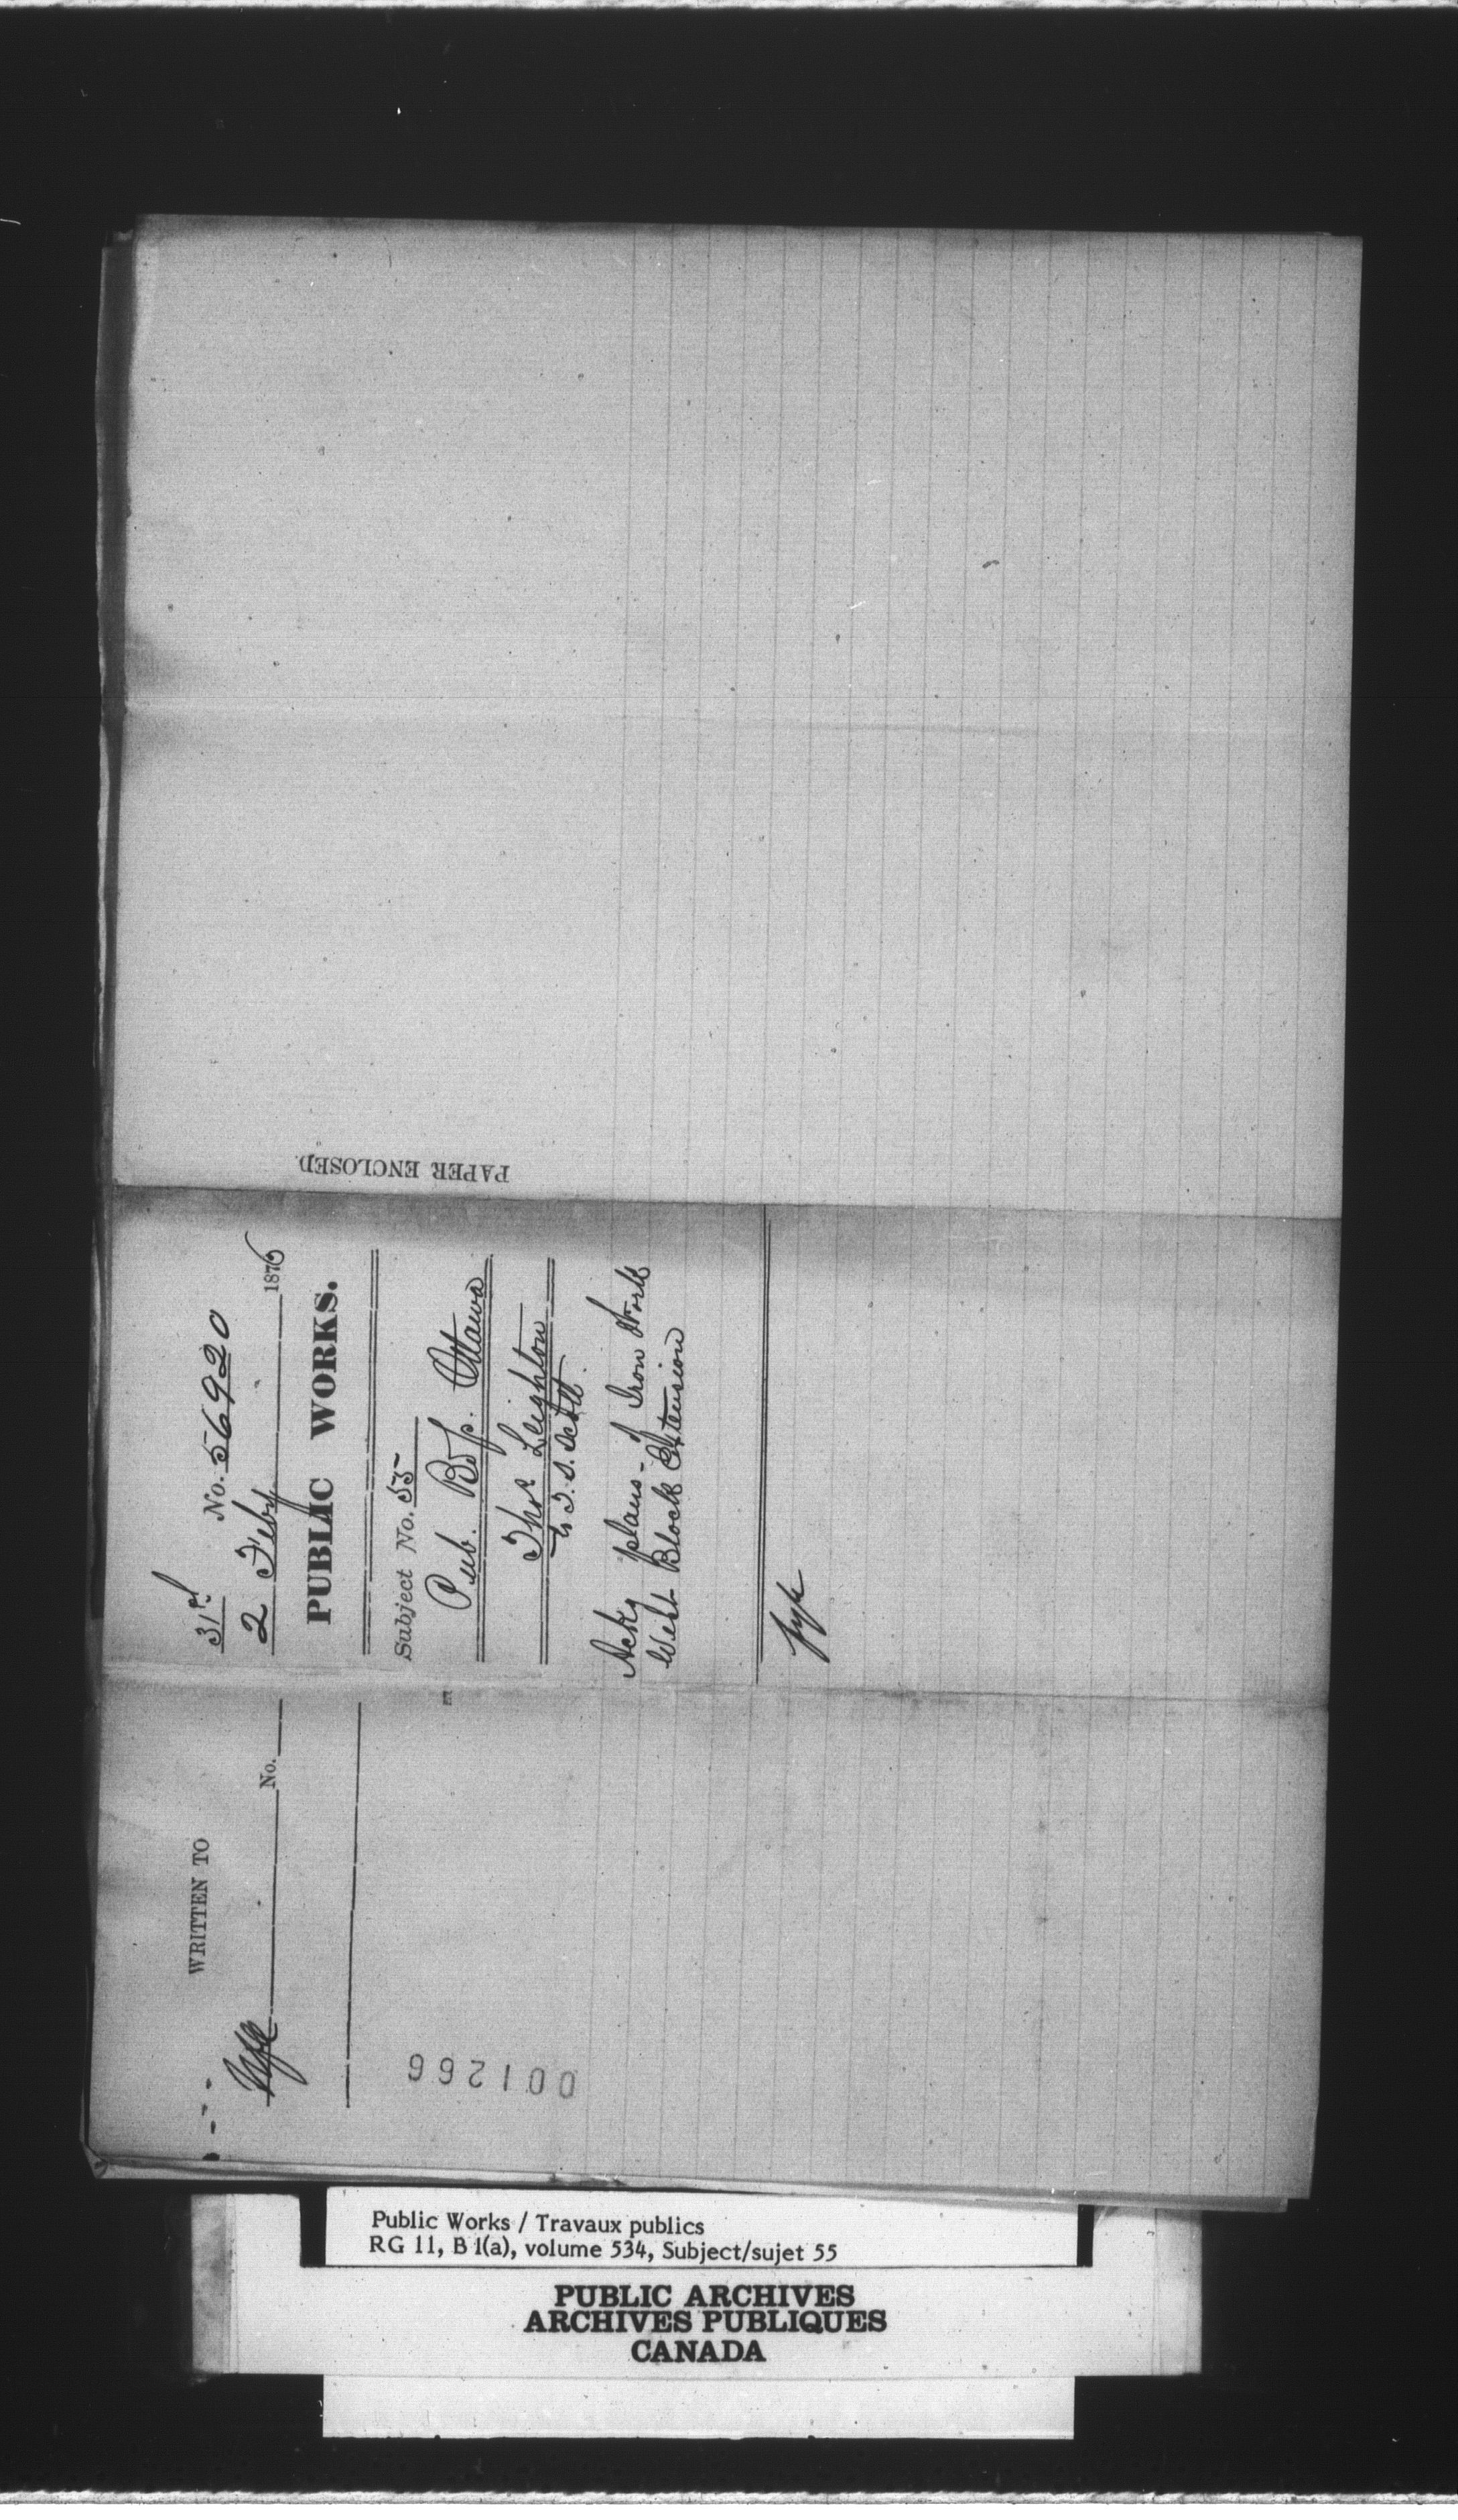 PAPER ENCLOSED
31st
No. 56920
2 Feby 1876
PUBLIC WORKS.
Subject No. 55
Pub. Bdgs. Ottawa
Thos. Leighton
to T. S. Scott.
Ackg plans of Iron Work
West Block Extension
WRITTEN TO
No.
001266
Public Works / Travaux publics
RG 11, B 1(a), volume 534, Subject/sujet 55
PUBLIC ARCHIVES
ARCHIVES PUBLIQUES
CANADA